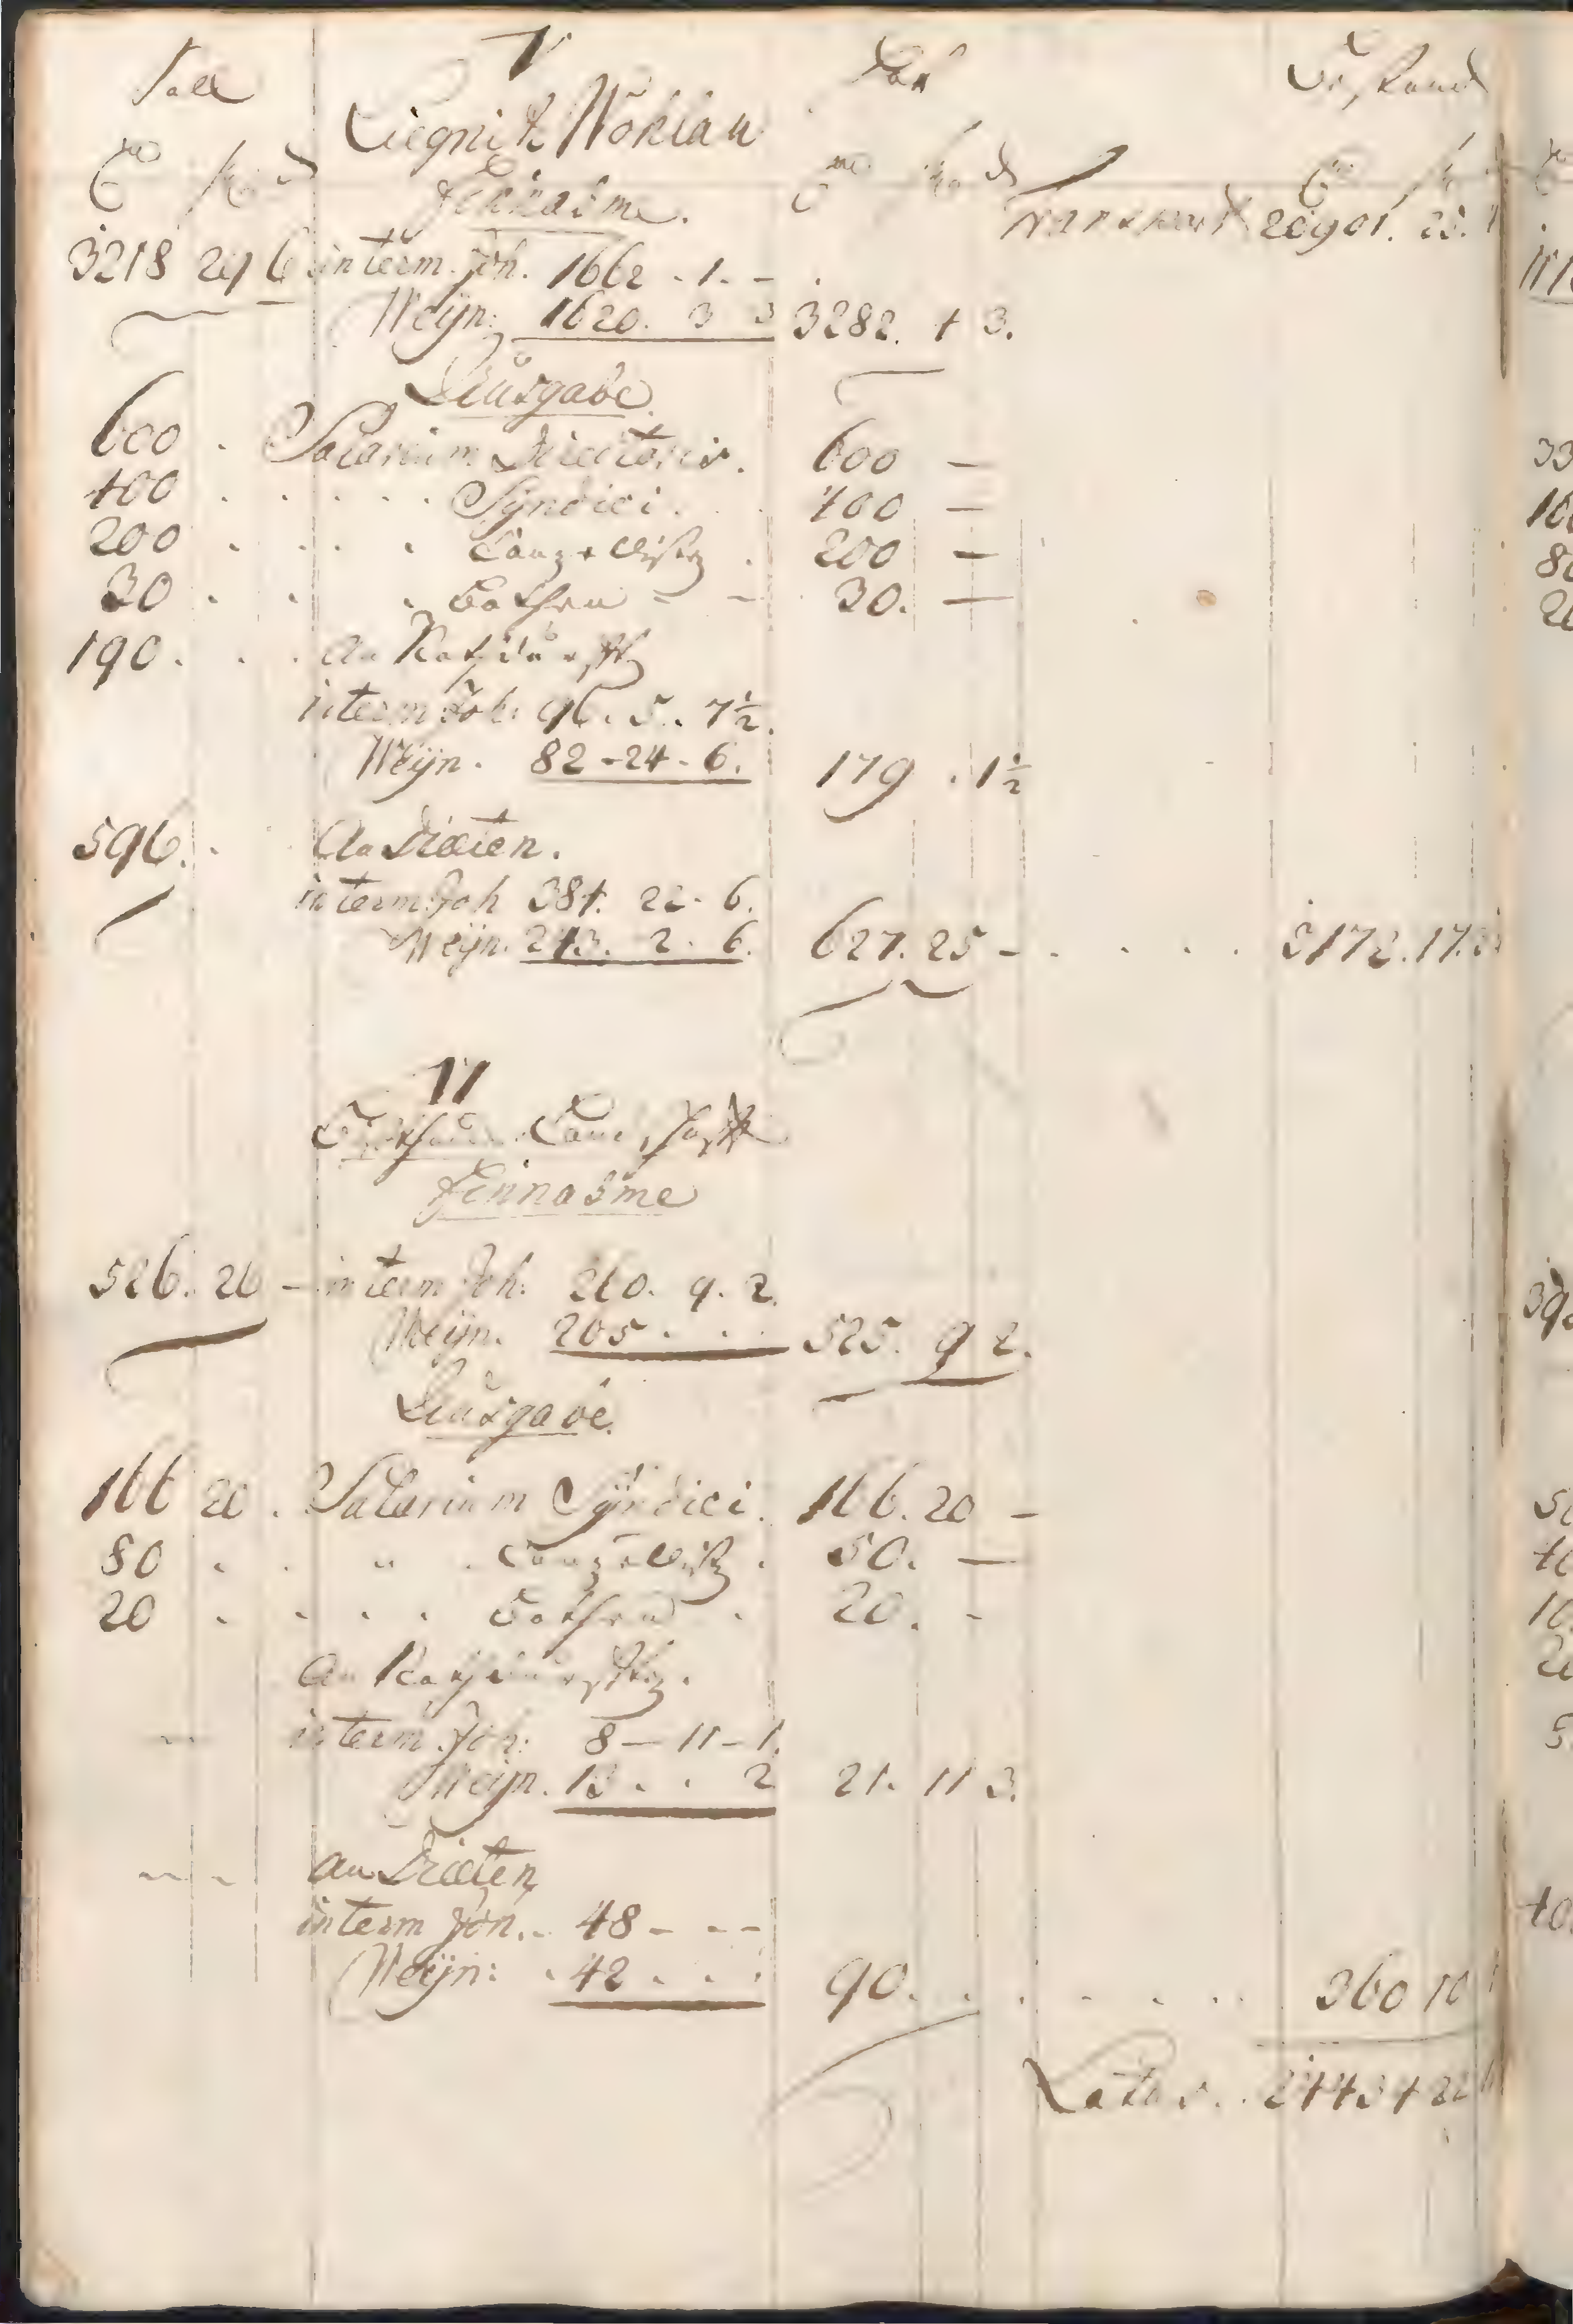 Soll V hat Bestand
Liegnitz Wohlau
Einnahme. Transport 20901. 23.
3218 29 6 in term. Joh. 1662 . 1. -
Weyn: 1620. 3 3 3282. 4 3.
Ausgabe
600 . Salarium Directoris. 600 -
400 . . . . . Syndici. 400 -
200 . . . . Canzellisten . 200 -
30 . . . Bothen - - 30. -
190. . . An Nothdurfften
in term Joh: 96. 5. 7½.
Weyn. 82 - 24 - 6. 179 . 1½
596. . An Diaeten.
in term: Joh 384. 22. 6.
Weyn. 243. 2. 6. 627. 25 - . . . . 3172. 17.
VI
Einnahme
526. 20 - in term Joh: 260. 9. 2.
Weyn. 265 . . . 525. 9 2.
Ausgabe.
166 20 . Salarium Syndici. 166. 20 -
50 . . " . Canzellisten . 50. -
20 . . . . Bothen . 20. -
An Nothdurfften.
in term. Joh: 8 - 11 - 1.
Weyn. 13 . . 2 21. 11 3.
An Diaeten
in term Joh. . 48 - - -
Weyn: . 42 . . . 90. . . . . . . 360 10
Latus . . 24434 22